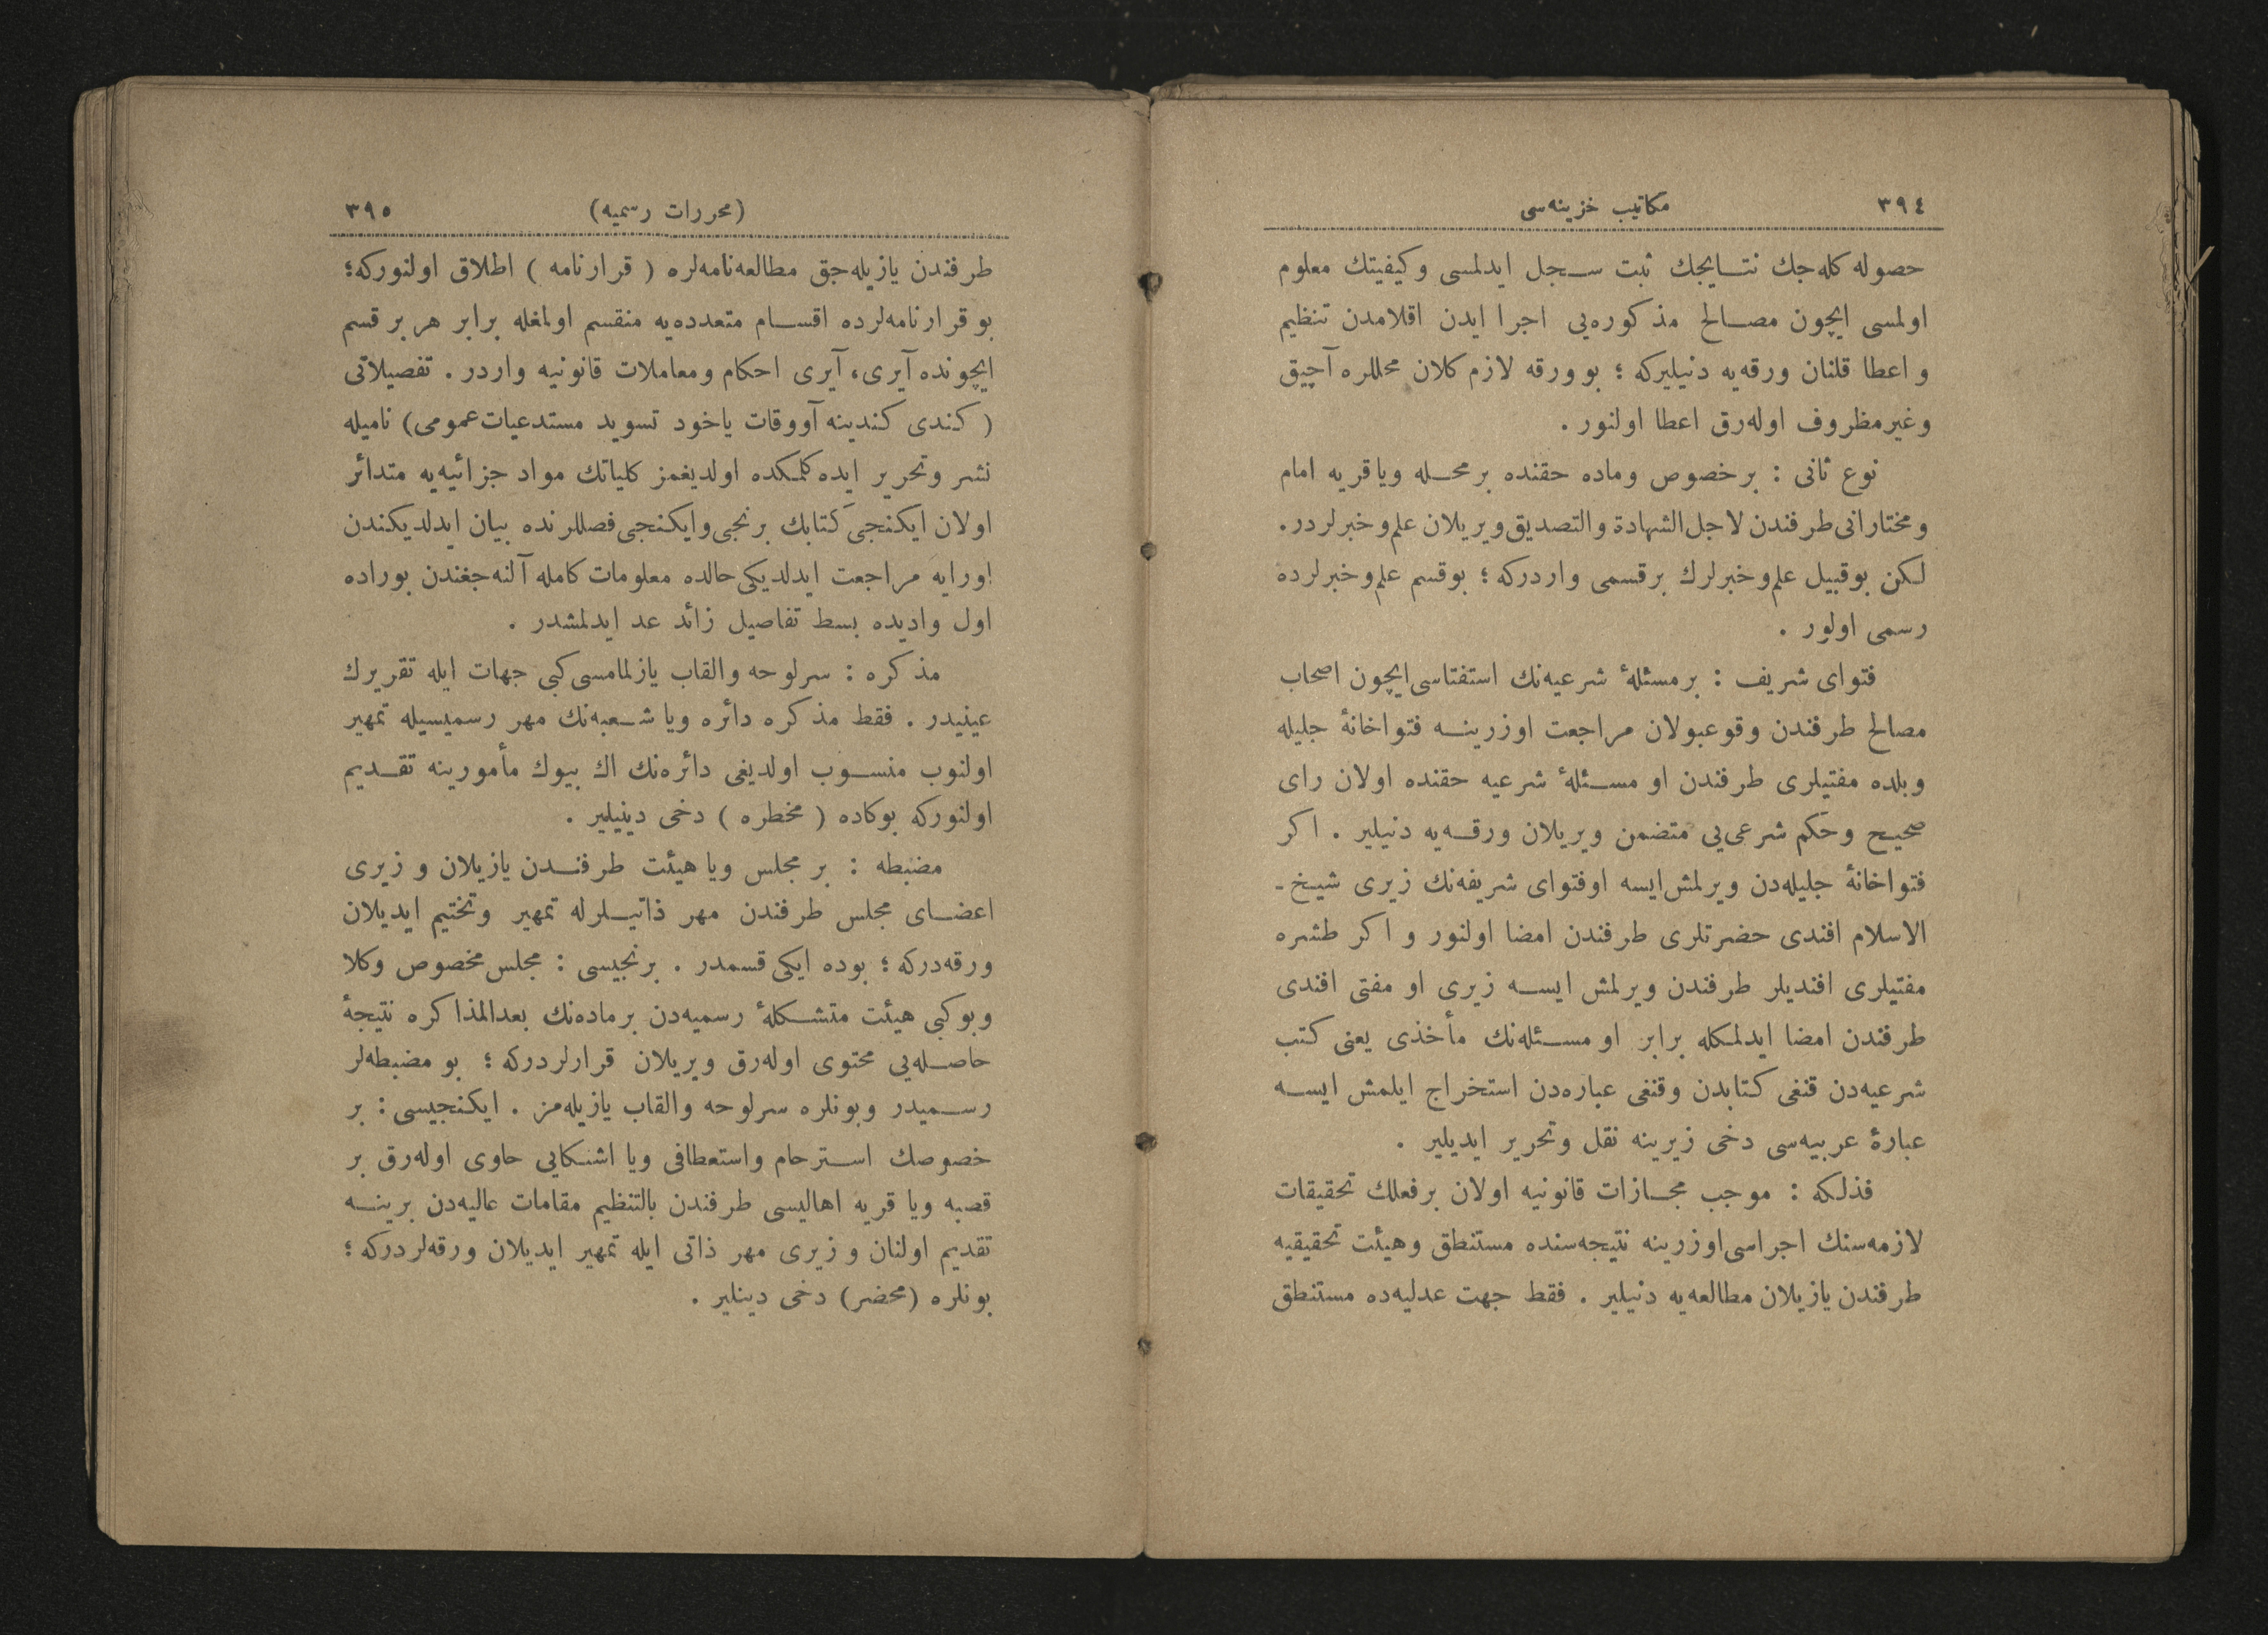 ٣٩٤ مكاتيب خزينه‌سى
حصوله كله‌جك نتايجك ثبت سجل ايدلمسى وكيفيتك معلوم
اولمسى ايچون مصالح مذكوره‌يى اجرا ايدن اقلامدن تنظيم
و اعطا قلنان ورقه‌يه دنيليركه ؛ بو ورقه لازم كلان محللره آچيق
وغير مظروف اوله‌رق اعطا اولنور .
نوع ثانى : بر خصوص وماده حقنده بر محله ويا قريه امام
و مختارانى طرفندن لاجل الشهادة والتصديق ويريلان علم و خبرلردر.
لكن بو قبيل علم و خبرلرك بر قسمى واردركه ؛ بو قسم علم و خبرلرده
رسمى اولور .
فتواى شريف : بر مسئلهٔ شرعيه‌نك استفتاسى ايچون اصحاب
مصالح طرفندن وقوعبولان مراجعت اوزرينه فتواخانهٔ جليله
و بلده مفتيلرى طرفندن او مسئلهٔ شرعيه حقنده اولان راى
صحيح و حكم شرعى‌يى متضمن ويريلان ورقه‌يه دنيلير . اكر
فتواخانهٔ جليله‌دن ويرلمش ايسه او فتواى شريفه‌نك زيرى شيخ -
الاسلام افندى حضرتلرى طرفندن امضا اولنور و اكر طشره
مفتيلرى افنديلر طرفندن ويرلمش ايسه زيرى او مفتى افندى
طرفندن امضا ايدلمكله برابر او مسئله‌نك مأخذى يعنى كتب
شرعيه‌دن قنغى كتابدن وقنغى عباره‌دن استخراج ايلمش ايسه
عبارهٔ عربيه‌سى دخى زيرينه نقل وتحرير ايديلير .
فذلكه : موجب مجازات قانونيه اولان بر فعلك تحقيقات
لازمه‌سنك اجراسى اوزرينه نتيجه‌سنده مستنطق وهيئت تحقيقيه
طرفندن يازيلان مطالعه‌يه دنيلير . فقط جهت عدليه‌ده مستنطق
(محررات رسميه) ٣٩٥
طرفندن يازيله‌جق مطالعه‌نامه‌لره ( قرارنامه ) اطلاق اولنوركه؛
بو قرارنامه‌لرده اقسام متعدده‌يه منقسم اولمغله برابر هر بر قسم
ايچونده آيرى، آيرى احكام ومعاملات قانونيه واردر . تفصيلاتى
( كندى كندينه آووقات ياخود تسويد مستدعيات عمومى) ناميله
نشر وتحرير ايده‌كلمكده اولديغمز كلياتك مواد جزائيه‌يه متدائر
اولان ايكنجى كتابك برنجى و ايكنجى فصللرنده بيان ايدلديكندن
اورايه مراجعت ايدلديكى حالده معلومات كامله آلنه‌جغندن بوراده
اول واديده بسط تفاصيل زائد عد ايدلمشدر .
مذكره : سرلوحه والقاب يازلمامسى كبى جهات ايله تقريرك
عينيدر . فقط مذكره دائره ويا شعبه‌نك مهر رسميسيله تمهير
اولنوب منسوب اولديغى دائره‌نك اك بيوك مأمورينه تقديم
اولنوركه بوكاده ( مخطره ) دخى دينيلير .
مضبطه : بر مجلس ويا هيئت طرفندن يازيلان و زيرى
اعضاى مجلس طرفندن مهر ذاتيلرله تمهير وتختيم ايديلان
ورقه‌دركه ؛ بوده ايكى قسمدر . برنجيسى : مجلس مخصوص وكلا
وبو كبى هيئت متشكلهٔ رسميه‌دن بر ماده‌نك بعدالمذاكره نتيجهٔ
حاصله‌يى محتوى اوله‌رق ويريلان قرارلردركه ؛ بو مضبطه‌لر
رسميدر وبونلره سرلوحه والقاب يازيله‌مز . ايكنجيسى : بر
خصوصك استرحام واستعطافى ويا اشتكايى حاوى اوله‌رق بر
قصبه ويا قريه اهاليسى طرفندن بالتنظيم مقامات عاليه‌دن برينه
تقديم اولنان و زيرى مهر ذاتى ايله تمهير ايديلان ورقه‌لردركه ؛
بونلره (محضر) دخى دينلير .